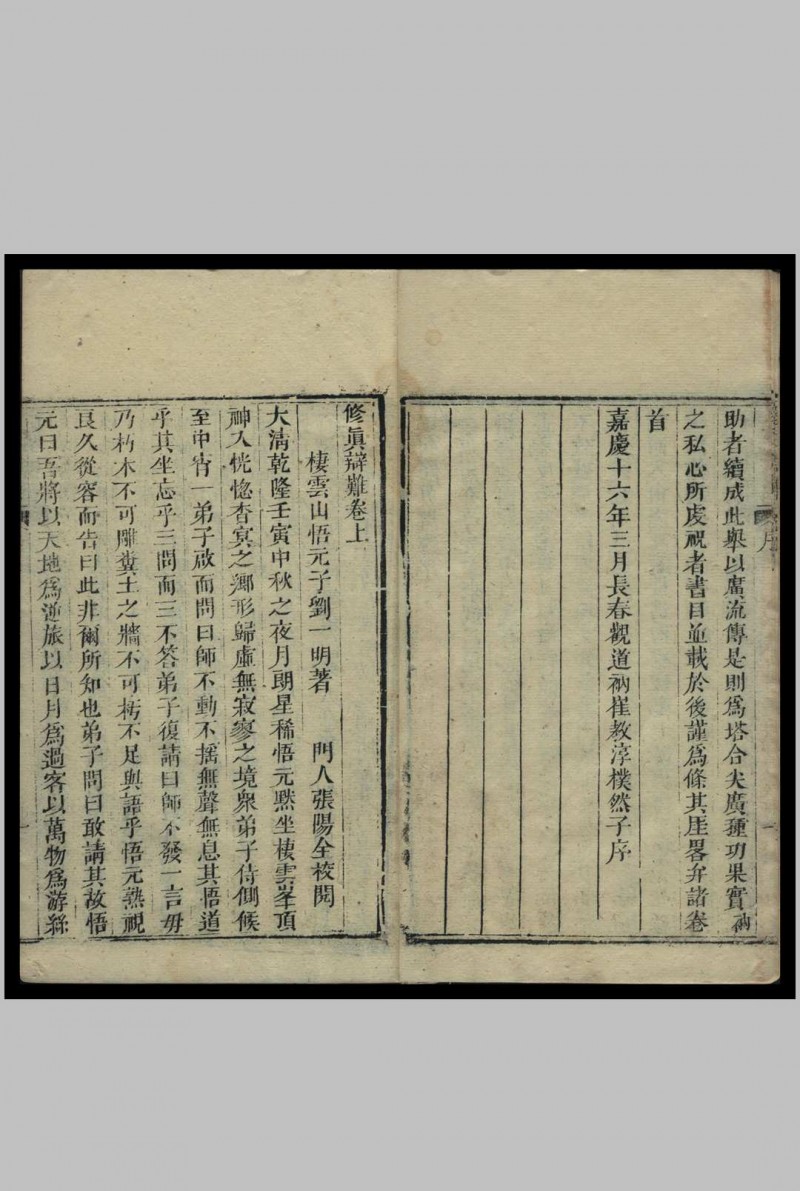 助者續成此舉以廣流傳是則爲塔合尖廣種功果實衲
之私心所虔祝者書目並載於後謹爲條其厓畧弁諸卷
首
嘉慶十六年三月長春觀道衲崔教淳樸然子序
修眞辯難卷上
棲雲山悟元子劉一明著 門人張陽全校閱
大清乾隆壬寅中秋之夜月朗星稀悟元默坐棲雲峯頂
神入恍惚杳冥之鄉形歸虛無寂寥之境衆弟子侍側候
至中宵一弟子啟而問曰師不動不搖無聲無息其悟道
乎其坐忘乎三問而三不答弟子復請曰師不發一言毋
乃朽木不可雕糞土之牆不可杇不足與語乎悟元熟視
良久從容而告曰此非爾所知也弟子問曰敢請其故悟
元曰吾將以天地爲逆旅以日月爲過客以萬物爲游絲